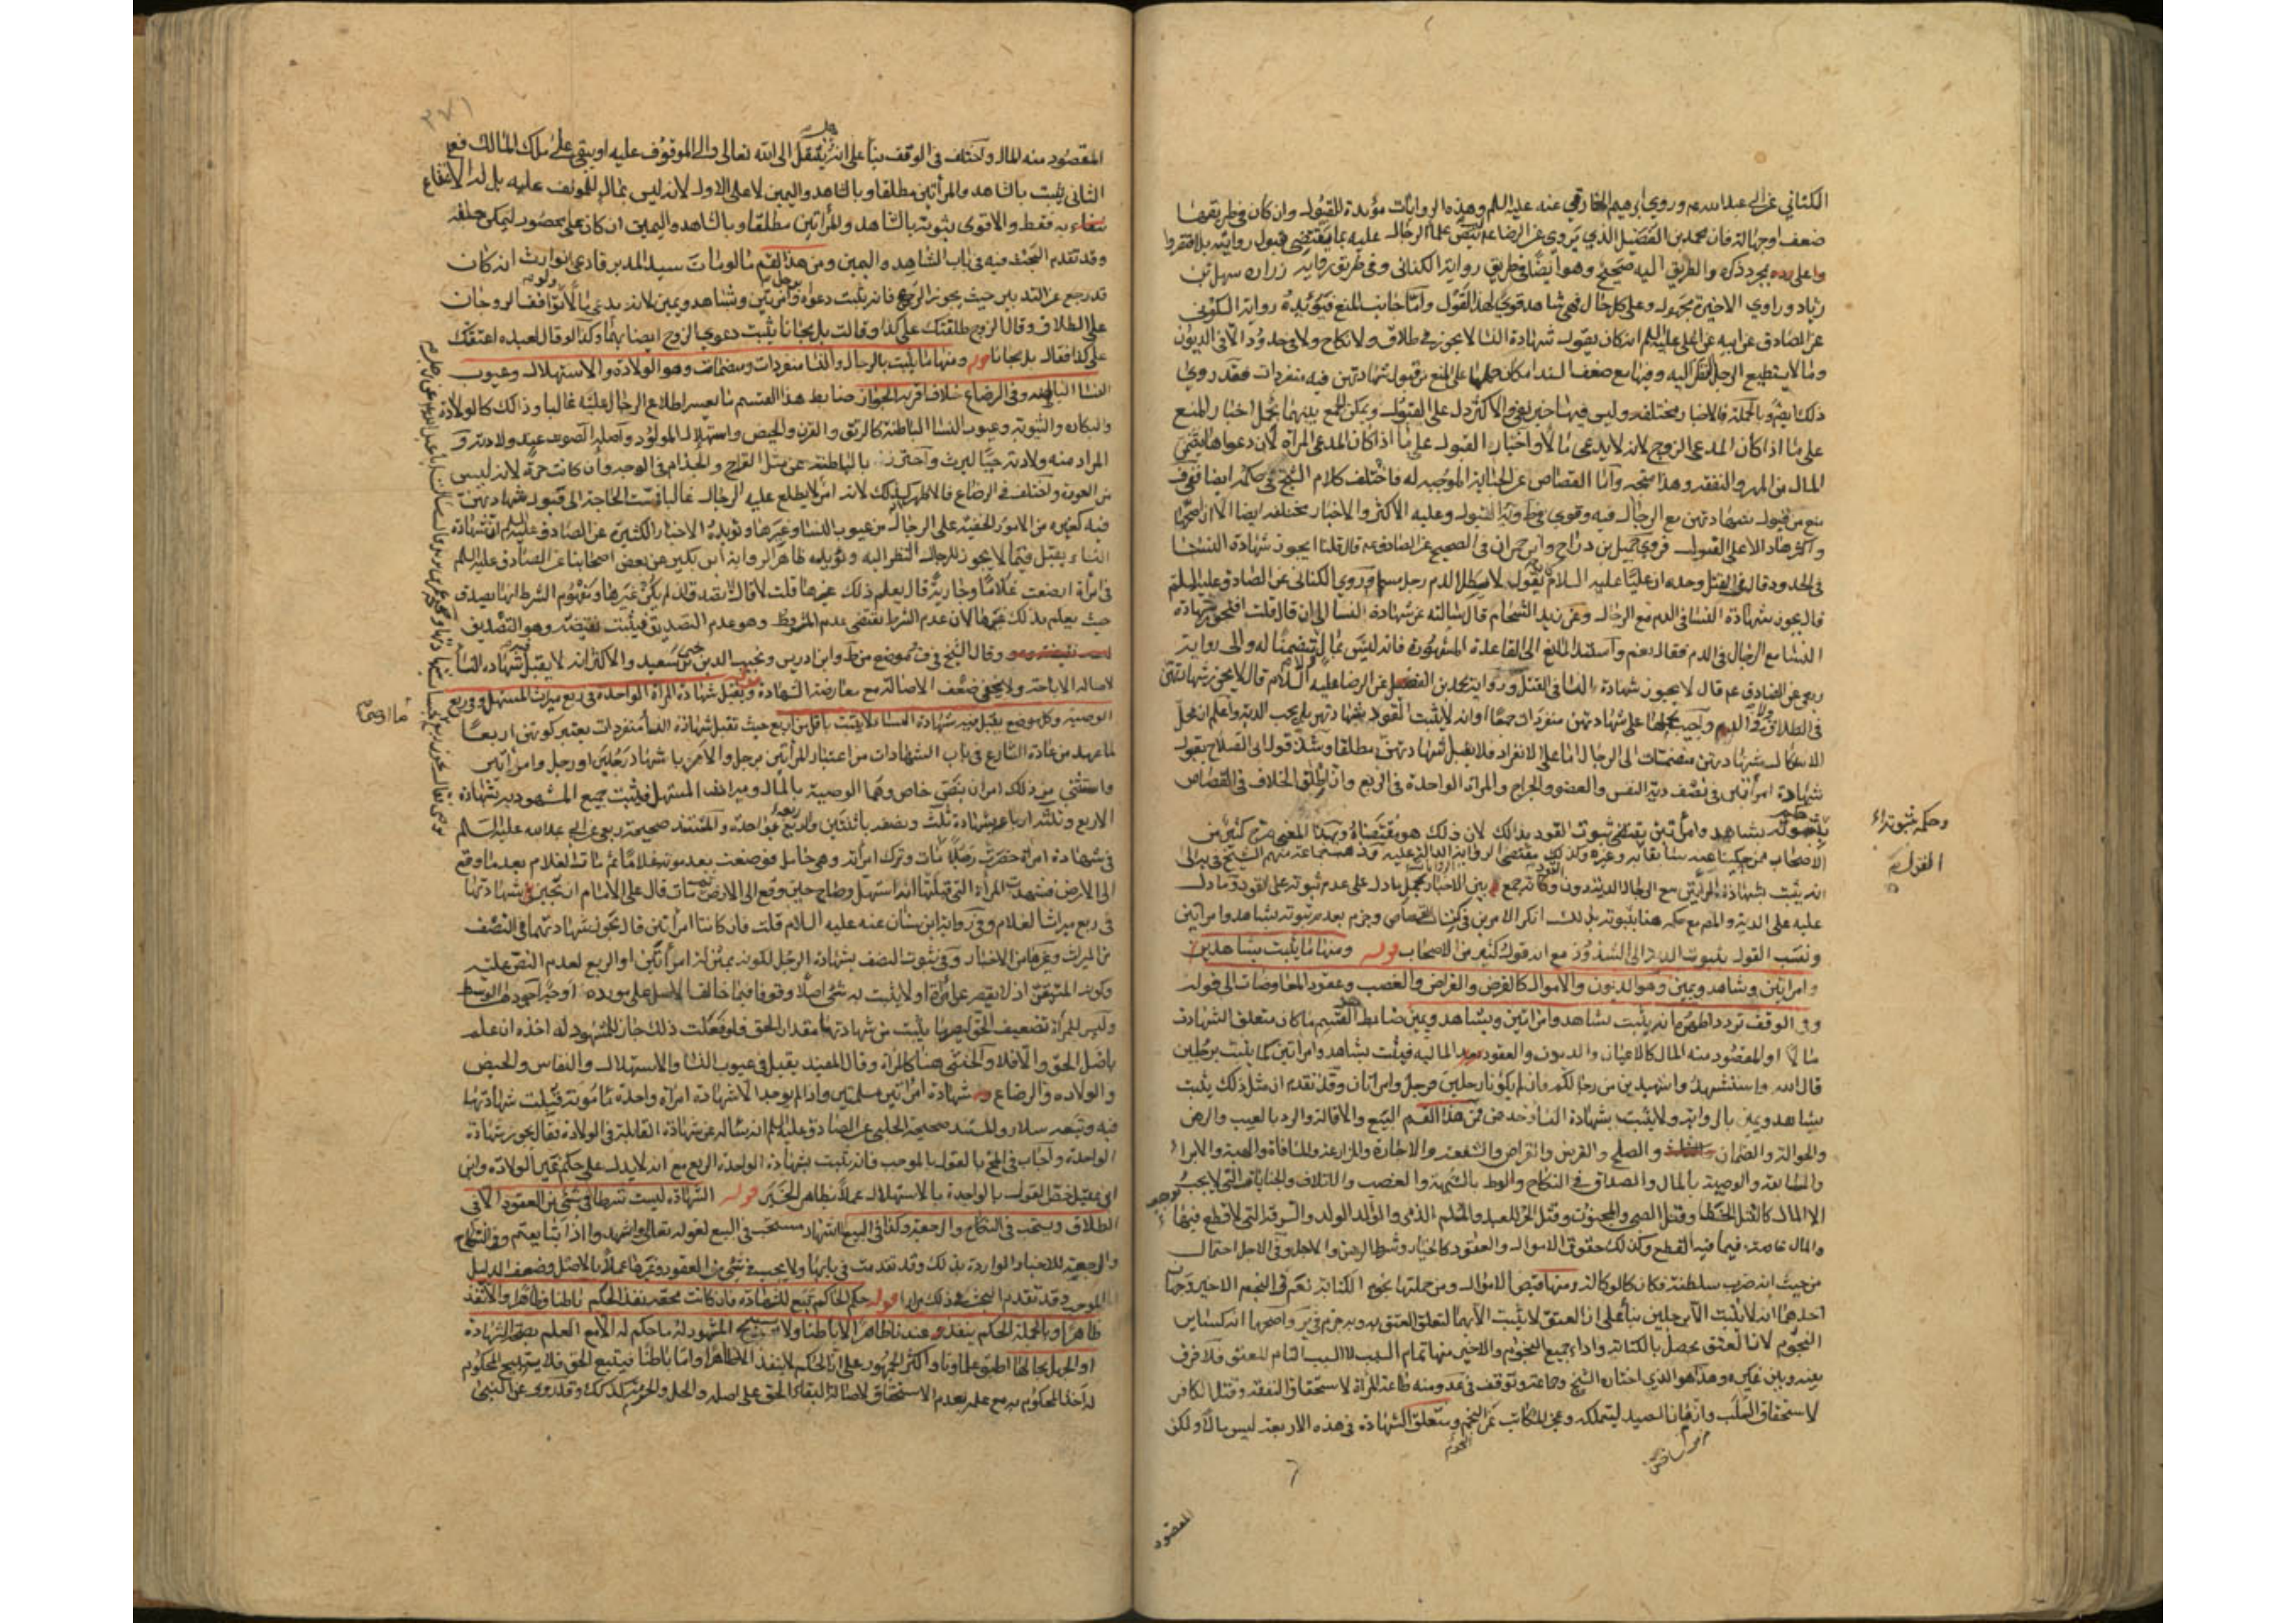 الكناني عن ابي عبدالله عم وروي ابرهيم الخارقي عنه عليه السلم وهذه الروايات مؤيدة للقبول وان كان في طريقها
ضعف او جهالة فان محمد بن الفضيل الذي يروي عن الرضا عم علماء الرجال عليه بما يقتضي قبول روايته
بمجرد ذكره والطريق اليه صحيح وهو ايضا في طريق رواية الكناني وفي طريق رواية زرارة سهل بن
زياد وراوي الاخيرة مجهول وعلى كل حال فهي شاهد قوي لهذا القول واما جانب المنع فيؤيده رواية السكوني
عن الصادق عن ابيه عن علي عليه السلم انه كان يقول شهادة النسا لا يجوز في طلاق ولا نكاح ولا في حدود الا في الديون
وما لا يستطيع الرجال النظر اليه وفيها مع ضعف السند امكان حملها على المنع من قبول شهادتهن فيه منفردات فقد روي
ذلك ايضا وبالجملة فالاخبار مختلفة وليس فيها خبر نقي والاكثر دل على القبول ويمكن الجمع بينهما بحمل اخبار المنع
على ما اذا كان المدعي الزوج لانه لا يدعي مالا واخبار القبول على ما اذا كان المدعي المراة لان دعواها يتضمن
المال من المهر والنفقة وهذا متجه واما القصاص عن الجناية الموجبة له فاختلف كلام الشيخ في حكمه ايضا ففي ف
منع من قبول شهادتهن مع الرجال فيه وقوي في ط ويه القبول وعليه الاكثر والاخبار مختلفة ايضا الا ان اصحها
واكثرها دالا على القبول فروي جميل بن دراج وابن حمران في الصحيح عن الصادق عم قال قلنا ايجوز شهادة النسا
في الحدود قال في القتل وحده ان عليا عليه السلام كان يقول لا يبطل دم رجل مسلم وروي الكناني عن الصادق عليه السلم
قال يجوز شهادة النسا في الدم مع الرجال وعن زيد الشحام قال سالته عن شهادة النسا الى ان قال قلت افتجوز شهادة
النسا مع الرجال في الدم فقال نعم واستند المانع الى القاعدة المشهورة فانه ليس بمال ولا متضمنا له والى رواية
ربعي عن الصادق عم قال لا يجوز شهادة النسا في القتل ورواية محمد بن الفضيل عن الرضا عليه السلام قال لا يجوز شهادتهن
في الطلاق ولا في الدم واجيب بحملها على شهادتهن منفردات جمعا او انه لا يثبت القود بشهادتهن بل يجب الدية واعلم ان محل
الاشكال شهادتهن منضمات الى الرجال اما على الانفراد فلا يقبل شهادتهن مطلقا وشذ قول ابي الصلاح بقبول
شهادة امراتين في نصف دية النفس والعضو والجراح والمراة الواحدة في الربع واطلق الخلاف في القصاص
بشاهد وامراتين يقتضي ثبوت القود بذلك لان ذلك هو مقتضاه وبهذا المعنى صرح كثير من
الاصحاب ممن حكينا عنه سابقا به وغيره وكذلك مقتضى الروايات الدالة عليه وذهب جماعة منهم الشيخ في ية الى
انه يثبت بشهادة المراتين مع الرجال الدية دون القود وكانه جمع بين الاخبار بحمل ما دل على عدم ثبوته على القود وما دل
عليه على الدية والمصنع مع حكمه هنا بثبوته بذلك انكر الامرين في كتاب القصاص وجزم بعدم ثبوته بشاهد وامراتين
ونسب القول بثبوت الدية الى الشذوذ مع انه قول كثير من الاصحاب قوله ومنها ما يثبت بشاهدين
وامراتين وشاهد ويمين وهو الديون والاموال كالقرض والقراض والغصب وعقود المعاوضات الى قوله
وفي الوقف تردد اظهره انه يثبت بشاهد وامراتين وبشاهد ويمين ضابط هذا القسم ما كان متعلق الشهادة
مالا او المقصود منه المال كالاعيان والديون والعقود المالية فيثبت بشاهد وامراتين كما يثبت برجلين
قال الله واستشهدوا شهيدين من رجالكم فان لم يكونا رجلين فرجل وامراتان وقد تقدم ان مثل ذلك يثبت
بشاهد ويمين بالرواية ولا يثبت بشهادة النسا وحدهن فمن هذا القسم البيع والاقالة والرد بالعيب والرهن
والحوالة والضمان والصلح والقرض والقراض والشفعة والاجارة والمزارعة والمساقاة والهبة والابراء
والمسابقة والوصية بالمال والصداق في النكاح والوطء بالشبهة والغصب والاتلاف والجنايات التي لا يجب
الا المال كالقتل الخطا وقتل الصبي والمجنون وقتل الحر للعبد والمسلم الذمي والوالد الولد والسرقة التي لا قطع فيها
والمال خاصة فيما فيه القطع وكذلك حقوق الاموال والعقود كالخيار وشرط الرهن والاجل وفي الاجل احتمال
من حيث انه ضرب سلطنة فكان كالوكالة ومنها قبض الاموال ومن جملتها نجوم الكتابة نعم في النجم الاخير وجهان
احدهما انه لا يثبت الا برجلين بناء على ان العتق لا يثبت الا بهما لتعلق العتق به وبه جزم في ير واصحهما انه كسائر
النجوم لان العتق يحصل بالكتابة واداء جميع النجوم والاخير منها تمام السبب لا السبب التام للعتق فلا فرق
بينه وبين غيره وهذا هو الذي اختاره الشيخ وجماعة وتوقف في عد ومنه طاعة المراة لاستحقاق النفقة وقتل الكافر
لاستحقاق السلب وازمان الصيد ليتملكه وعجز المكاتب عن النجم ومتعلق الشهادة في هذه الاربعة ليس بمال ولكن
النجوم
وحكمه بثبوته
القول
المقصود
٢٧١
المقصود منه المال واختلف في الوقف بناء على انه هل ينتقل الى الله تعالى والى الموقوف عليه او يبقى على ملك المالك فعلى
الثاني يثبت بالشاهد والمراتين مطلقا وبالشاهد واليمين لا على الاول لانه ليس بمال للموقوف عليه بل له الانتفاع
به فقط والاقوى ثبوته بالشاهد والمراتين مطلقا وبالشاهد واليمين ان كان على محصور ليمكن حلفه
وقد تقدم البحث فيه في باب الشاهد واليمين ومن هذا القسم ما لو مات سيد المدبر فادعى الوارث انه كان
قد رجع عن التدبير حيث يجوز الرجوع فانه يثبت دعواه برجل وامراتين وشاهد ويمين لانه يدعي مالا ولو توافقا الزوجان
على الطلاق وقال الزوج طلقتك على كذا وقالت بل مجانا يثبت دعوى الزوج ايضا بهما وكذا لو قال لعبده اعتقتك
على كذا فقال بل مجانا قوله ومنها ما يثبت بالرجال والنسا منفردات ومنضمات وهو الولادة والاستهلال وعيوب
النسا الباطنة وفي الرضاع خلاف اقربه الجواز ضابط هذا القسم ما يعسر اطلاع الرجال عليه غالبا وذلك كالولادة
والبكارة والثيوبة وعيوب النسا الباطنة كالرتق والقرن والحيض واستهلال المولود واصله الصوت عند ولادته و
المراد منه ولادته حيا ليرث واحترز بالباطنة عن مثل القراح والجذام في الوجه وان كانت حرة لانه ليس
من العورة واختلف في الرضاع فالاظهر انه كذلك لانه امر لا يطلع عليه الرجال غالبا فمست الحاجة الى قبول شهادتهن
فيه كغيره من الامور الخفية على الرجال من عيوب النسا وغيرها ويؤيده الاخبار الكثيرة عن الصادق عليه السلم ان شهادة
النساء يقبل فيما لا يجوز للرجال النظر اليه ويؤيده ظاهر الرواية ابن بكير عن بعض اصحابنا عن الصادق عليه السلم
في امراة ارضعت غلاما وجارية قال يعلم ذلك غيرها قلت لا قال لا تصدق ان لم يكن غيرها ومفهوم الشرط انها يصدق
حيث يعلم بذلك غيرها لان عدم الشرط يقتضي عدم المشروط وهو عدم التصديق فيثبت نقيضه وهو التصديق
وقال الشيخ في ف وموضع من ط وابن ادريس ونجيب الدين يحيى بن سعيد والاكثر انه لا يقبل فيه شهادة النسا
لاصالة الاباحة ولا يخفى ضعف الاصالة مع معارضة الشهادة ويقبل شهادة المراة الواحدة في ربع ميراث المستهل وفي ربع
الوصية وكل موضع يقبل فيه شهادة النسا فلا يثبت باقل من اربع حيث تقبل شهادة النسا منفردات يعتبر كونهن اربعا
لما عهد من عادة الشارع في باب الشهادات من اعتبار المراتين برجل والامر باشهاد رجلين او رجل وامراتين
واستثني من ذلك امران بنص خاص وهما الوصية بالمال وميراث المستهل فيثبت جميع المشهود به بشهادة
الاربع وثلثة ارباعه بشهادة ثلث ونصفه باثنتين وربعه بواحدة والمستند صحيحة ربعي عن ابي عبدالله عليه السلام
في شهادة امراة حضرت رجلا مات وترك امراته وهي حامل فوضعت بعد موته غلاما ثم مات الغلام بعد ما وقع
الى الارض فشهدت المراة التي قبلتها انه استهل وصاح حين وقع الى الارض ثم مات قال على الامام ان يجيز شهادتها
في ربع ميراث الغلام وفي رواية ابن سنان عنه عليه السلام قلت فان كانتا امراتين قال تجوز شهادتهما في النصف
من الميراث وغيرها من الاخبار وفي ثبوت النصف بشهادة الرجل لكونه بمنزلة امراتين او الربع لعدم النص عليه
وكونه المتيقن اذ لا يقصر عن امراة او لا يثبت به شئ اصلا وقوفا فيما خالف الاصل على مورده اوجه اجودها الوسط
وليس للمراة تضعيف الحق ليصير ما يثبت من شهادتها مقدار الحق فلو فعلت ذلك جاز للمشهود له اخذه ان علم
باصل الحق والا فلا والخنثى هنا كالمراة وقال المفيد يقبل في عيوب النسا والاستهلال والنفاس والحيض
والولادة والرضاع شهادة امراتين مسلمتين واذا لم يوجد الا شهادة امراة واحدة مامونة قبلت شهادتها
فيه وتبعه سلار والمستند صحيحة الحلبي عن الصادق عليه السلم انه ساله عن شهادة القابلة في الولادة فقال يجوز شهادة
الواحدة واجاب في المخ بالقول بالموجب فانه يثبت بشهادة الواحدة الربع مع انه لا يدل على حكم غير الولادة وابن
ابي عقيل خص القول بالواحدة بالاستهلال عملا بظاهر الخبر قوله الشهادة ليست شرطا في شئ من العقود الا في
الطلاق ويستحب في النكاح والرجعة وكذا في البيع الاشهاد مستحب في البيع لقوله تعالى واشهدوا اذا تبايعتم وفي النكاح
والرجعة للاخبار الواردة بذلك وقد تقدمت في بابها ولا يجب في شئ من العقود وغيرها عملا بالاصل وضعف الدليل
الموجب وقد تقدم البحث في ذلك مرارا قوله حكم الحاكم تبع للشهادة فان كانت محقة نفذ الحكم باطنا وظاهرا والا نفذ
ظاهرا وبالجملة الحكم ينفذ عندنا ظاهرا لا باطنا ولا يستبيح المشهود له ما حكم له الا مع العلم بصحة الشهادة
او الجهل بحالها اطبق علماونا واكثر الجمهور على ان الحكم لا ينفذ الا ظاهرا واما باطنا فيتبع الحق فلا يستبيح المحكوم
له اخذ المحكوم به مع علمه بعدم الاستحقاق لاصالة البقاء الحق على اصله والحل والحرمة كذلك وقد روي عن النبي